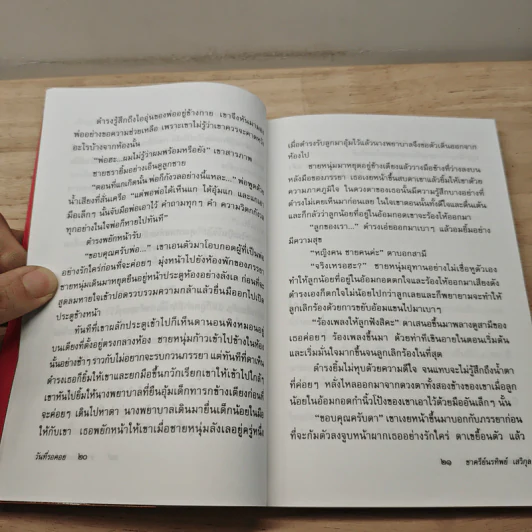 ดำรงรู้สึกถึงไออุ่นของพ่ออยู่ข้างกาย เขาจึงหันมามอง
พ่ออย่างขอความช่วยเหลือ เพราะเขาไม่รู้ว่าเขาควรจะคาดหวัง
อะไรบ้างจากห้องนั้น
“พ่อฮะ...ผมไม่รู้ว่าผมพร้อมหรือยัง” เขาสารภาพ
ชายชรายิ้มอย่างเอ็นดูลูกชาย
“ตอนที่แกเกิดนั้น พ่อก็กังวลอย่างนี้แหละ...” พ่อพูดด้วย
น้ำเสียงที่สั่นเครือ “แต่พอพ่อได้เห็นแก ได้อุ้มแก และแกเอา
มือเล็กๆ นั้นจับมือพ่อเอาไว้ คำถามทุก ๆ คำ ความวิตกกังวล
ทุกอย่างในใจพ่อก็หายไปทันที”
ดำรงพยักหน้ารับ
“ขอบคุณครับพ่อ...” เขาเอนตัวมาโอบกอดผู้ที่เป็นพ่อ
อย่างรักใคร่ก่อนที่จะค่อยๆ มุ่งหน้าไปยังห้องพักของภรรยา
ชายหนุ่มเดินมาหยุดยืนอยู่หน้าประตูห้องอย่างลังเล ก่อนที่จะ
สูดลมหายใจเข้าปอดรวบรวมความกล้าแล้วยื่นมือออกไปเปิด
ประตูข้างหน้า
ทันทีที่เขาผลักประตูเข้าไปก็เห็นดานอนพิงหมอนอยู่
บนเตียงที่ตั้งอยู่ตรงกลางห้อง ชายหนุ่มก้าวเข้าไปข้างในห้อง
นั้นอย่างช้าๆ ราวกับไม่อยากจะรบกวนภรรยา แต่ทันทีที่ดาเห็น
ดำรงเธอก็ยิ้มให้เขาและยกมือขึ้นกวักเรียกเขาให้เข้าไปใกล้ๆ
เขาหันไปยิ้มให้นางพยาบาลที่ยืนอุ้มเด็กทารกข้างเตียงก่อนที่
จะค่อยๆ เดินไปหาดา นางพยาบาลเดินมายื่นเด็กน้อยในมือ
ให้กับเขา เธอพยักหน้าให้เขาเมื่อชายหนุ่มลังเลอยู่ครู่หนึ่ง
วันที่รอคอย ๒๐
เมื่อดำรงรับลูกมาอุ้มไว้แล้วนางพยาบาลจึงขอตัวเดินออกจาก
ห้องไป
ชายหนุ่มมาหยุดอยู่ข้างเตียงแล้ววางมือข้างที่ว่างลงบน
หลังมือของภรรยา เธอเงยหน้าขึ้นสบตาเขาแล้วยิ้มให้เขาด้วย
ความภาคภูมิใจ ในดวงตาของเธอนั้นมีความรู้สึกบางอย่างที่
ดำรงไม่เคยเห็นมาก่อนเลย ในใจเขาตอนนั้นทั้งดีใจและตื่นเต้น
และก็กลัวว่าลูกน้อยที่อยู่ในอ้อมกอดเขาจะร้องไห้ออกมา
“ลูกของเรา...” ดำรงเอ่ยออกมาเบาๆ แล้วอมยิ้มอย่าง
มีความสุข
“หญิงคน ชายคนค่ะ” ดาบอกสามี
“จริงเหรอฮะ?” ชายหนุ่มอุทานอย่างไม่เชื่อหูตัวเอง
ทำให้ลูกน้อยที่อยู่ในอ้อมกอดตกใจและร้องไห้ออกมาเสียงดัง
ดำรงเองก็ตกใจไม่น้อยไปกว่าลูกเลยและก็พยายามจะทำให้
ลูกเลิกร้องด้วยการขยับอ้อมแขนไปมาเบาๆ
“ร้องเพลงให้ลูกฟังสิคะ” ดาเสนอขึ้นมาพลางดูสามีของ
เธอค่อยๆ ร้องเพลงขึ้นมา ด้วยท่าทีเขินอายในตอนเริ่มต้น
และเริ่มมั่นใจมากขึ้นจนลูกเลิกร้องในที่สุด
ดำรงยิ้มไม่หุบด้วยความดีใจ จนแทบจะไม่รู้สึกถึงน้ำตา
ที่ค่อยๆ หลั่งไหลออกมาจากดวงตาทั้งสองข้างของเขาเมื่อลูก
น้อยในอ้อมกอดกำนิ้วโป้งของเขาเอาไว้ด้วยมืออันเล็กๆ นั้น
“ขอบคุณครับดา” เขาเงยหน้าขึ้นมาบอกกับภรรยาก่อน
ที่จะก้มตัวลงจูบหน้าผากเธออย่างรักใคร่ ดาเขยื้อนตัว แล้ว
๒๑ ชาครีย์นรทิพย์ เสวิกุล